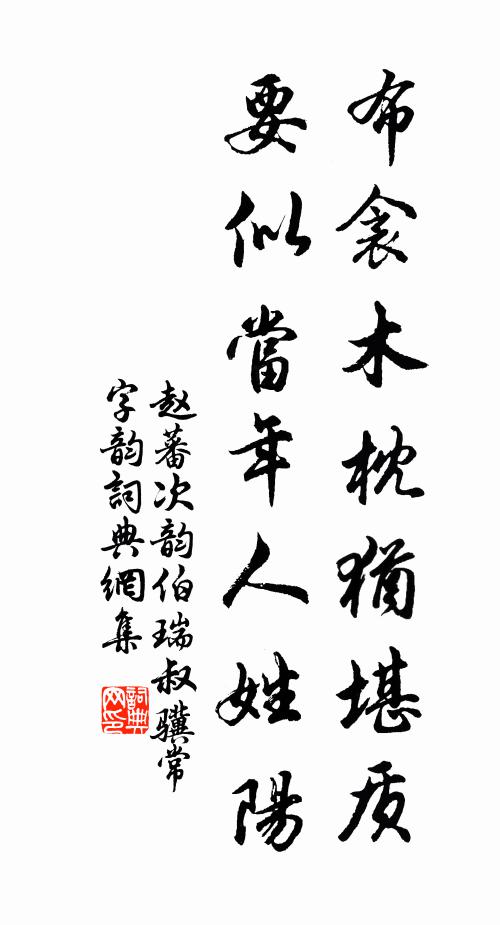 布衾木枕猶堪质
要似當年人姓陽
赵蕃次韵伯瑞叔骥常
字韵詞典網集
詞典网印